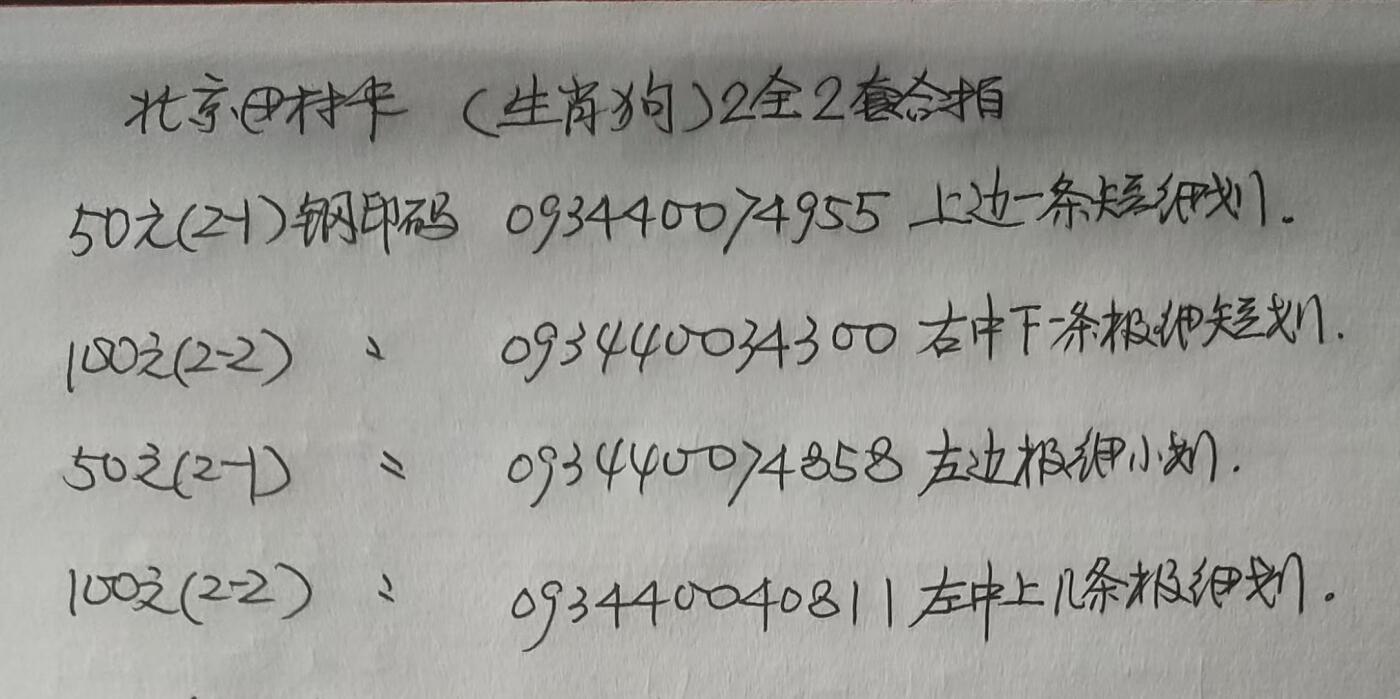 北京田村卡 (生肖狗)2全2套合拍
50元(2-1)钢印码 093440074955 上边一条短细划.
100元(2-2) 〃 093440034300 右中下一条极细短划.
50元(2-1) 〃 093440074858 左边极细小划.
100元(2-2) 〃 093440040811 左中上几条极细划.